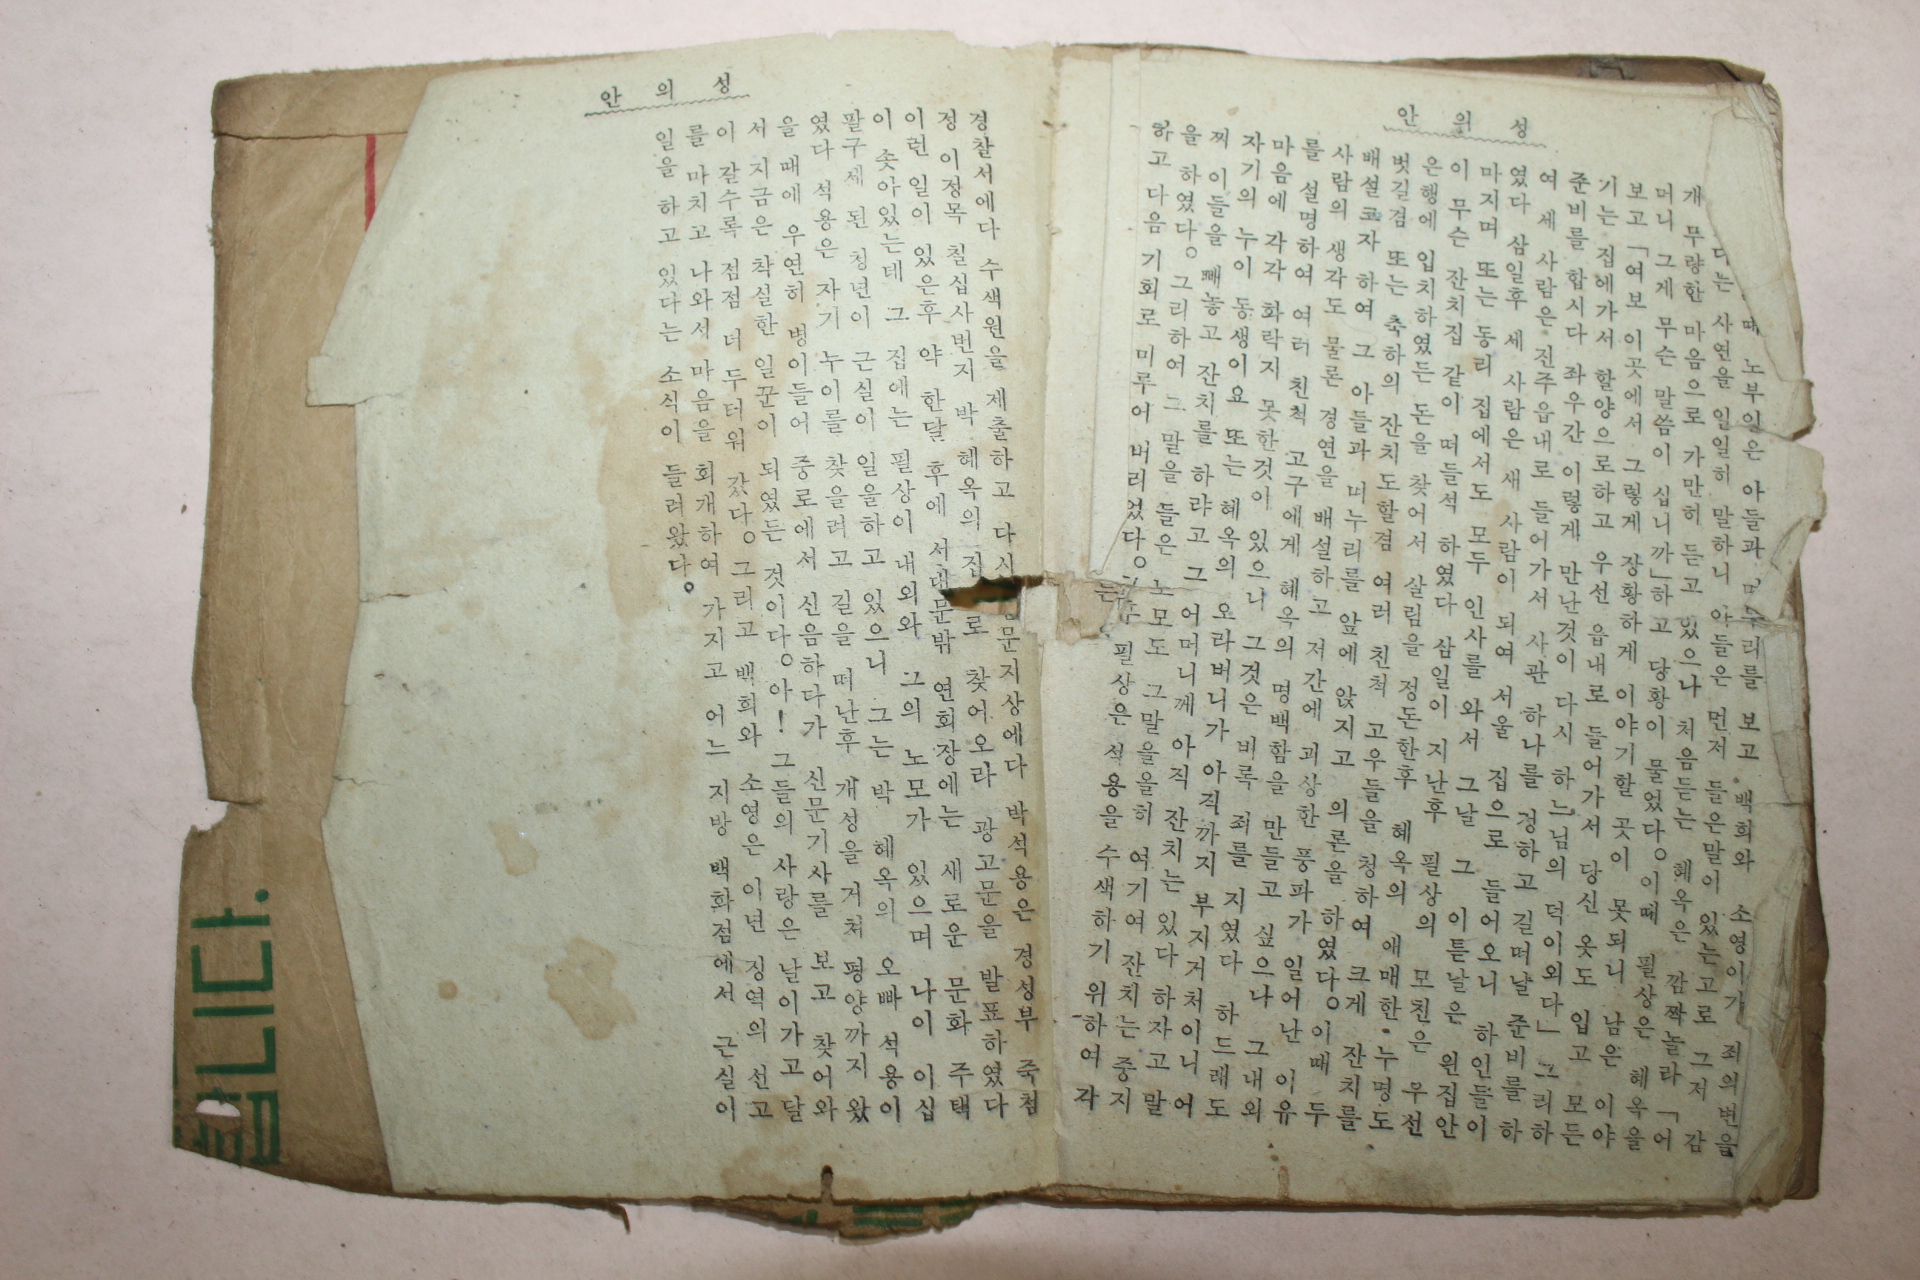 안 의 성
때 노부인은 아들과 며누리를 보고 백희와 소영이가 죄의변을
다는 사연을 일일히 말하니 아들은 먼저 들은말이 있는고로 그저 감
개 무량한 마음으로 가만히 듣고 있으나 처음듣는 혜옥은 깜짝놀라 「어
머니 그게 무슨 말씀이 십니까」하고 당황이 물었다。이때 필상은 혜옥을
보고「여보 이곳에서 그렇게 장황하게 이야기할 곳이 못되니 남은 이야
기는 집헤가서 할양으로하고 우선 읍내로 들어가서 당신 옷도 입고 모든
준비를 합시다 좌우간 이렇게 만난것이 다시 하느님의 덕이외다」 그리하
여 세 사람은 진주읍내로 들어가서 사관 하나를 정하고 길떠날 준비를 하
였다 삼일후 세 사람은 새 사람이 되여 서울 집으로 들어오니 하인들이
마지며 또는 동리 집에서도 모두 인사를 와서 그날 그 이튿날은 왼집안
이 무슨 잔치집 같이 떠들석 하였다 삼일이 지난후 필상의 모친은 우선
은행에 입치하였든 돈을 찾어서 살림을 정돈한후 혜옥의 애매한 누명도
벗길겸 또는 축하의 잔치도할겸 여러 친척 고우들을 청하여 크게 잔치를
배설코자 하여 그 아들과 며누리를 앞에 앉지고 의론을 하였다。이때 두
사람의 생각도 물론 경연을 배설하고 저간에 괴상한 풍파가 일어난 이유
를 설명하여 여러 친척 고구에게 혜옥의 명백함을 만들고 싶으나 그내외
마음에 각각 화락지 못한것이 있으니 그것은 비록 죄를 지였다 하드래도
자기의 누이 동생이요 또는 혜옥의 오라버니가 아직까지 부지거처이니 어
찌 이들을 빼놓고 잔치를 하랴고 그 어머니께 아직 잔치는 있다 하자고 말
을 하였다。그리하여 그 말을 들은 노모도 그말을올히 여기여 잔치는 중지
하고 다음 기회로 미루어 버리었다。 필상은 석용을 수색하기 위하여 각
안 의 성
경찰서에다 수색원을 제출하고 다시 문지상에다 박석용은 경성부 죽첨
정 이정목 칠십사번지 박 혜옥의 집 로 찾어오라 광고문을 발표하였다
이런 일이 있은후 약 한달 후에 서대문밖 연회장에는 새로운 문화 주택
이 솟아있는데 그 집에는 필상이 내외와 그의 노모가 있으며 나이 이십
팔구세 된 청년이 근실이 일울하고 있으니 그는 박 혜옥의 오빠 석용이
였다 석용은 자기 누이를 찾을려고 길을 떠난후 개성을 거처 평양까지 왔
을 때에 우연히 병이들어 중로에서 신음하다가 신문기사를 보고 찾어와
서 지금은 착실한 일꾼이 되였든 것이다。아! 그들의 사랑은 날이가고 달
이 갈수록 점점 더 두터워 갔다。그리고 백희와 소영은 이년 징역의 선고
를 마치고 나와서 마음을 회개하여 가지고 어느 지방 백화점에서 근실이
일을 하고 있다는 소식이 들려왔다。
니다.